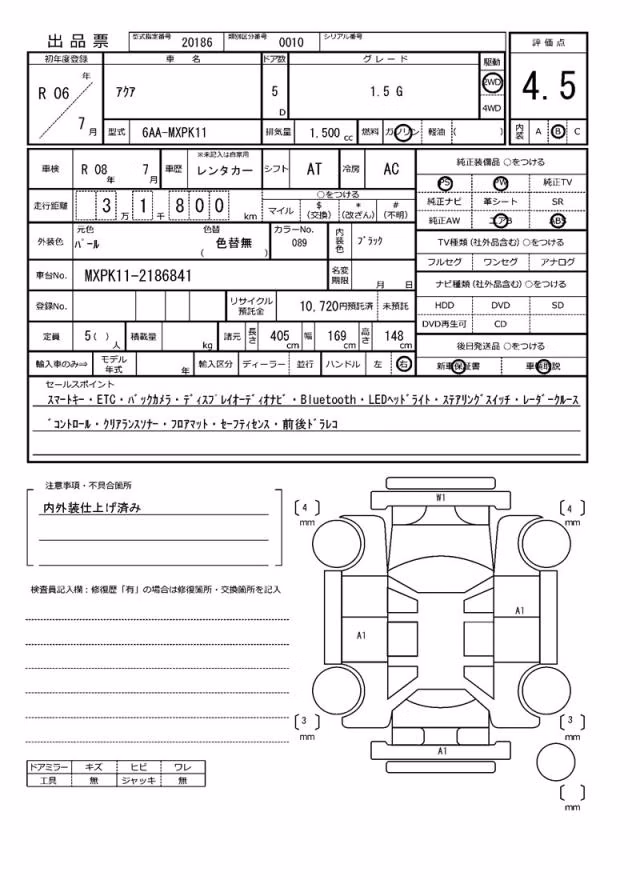 出品票 型式指定番号 20186 類別区分番号 0010 シリアル番号
評価点
4.5
内装 A B C
初年度登録 車名 ドア数 グレード 駆動
R 06 年 7 月 アクア 5 D 1.5 G 2WD 4WD
型式 6AA-MXPK11 排気量 1.500 cc 燃料 ガソリン 軽油 ( )
車検 R 08 年 7 月 車歴 ※未記入は自家用 レンタカー シフト AT 冷房 AC
走行距離 3 万 1 千 8 0 0 km
○をつける
マイル $ (交換) * (改ざん) # (不明)
外装色 元色 パール 色替 ( 色替無 ) カラーNo. 089 内装色 ブラック
車台No. MXPK11-2186841 名変期限 月 日
登録No. リサイクル預託金 10,720円預託済 未預託
定員 5 ( ) 人 積載量 kg 諸元 長さ 405 cm 幅 169 cm 高さ 148 cm
輸入車のみ⇒ モデル年式 年 輸入区分 ディーラー 並行 ハンドル 左 右
純正装備品 ○をつける
PS PW 純正TV
純正ナビ 革シート SR
純正AW エアB ABS
TV種類 (社外品含む) ○をつける
フルセグ ワンセグ アナログ
ナビ種類 (社外品含む) ○をつける
HDD DVD SD
DVD再生可 CD
後日発送品 ○をつける
新車保証書 車輌取説
セールスポイント
スマートキー・ETC・バックカメラ・ディスプレイオーディオナビ・Bluetooth・LEDヘッドライト・ステアリングスイッチ・レーダークルーズ
コントロール・クリアランスソナー・フロアマット・セーフティセンス・前後ドラレコ
注意事項・不具合箇所
内外装仕上げ済み
検査員記入欄：修復歴「有」の場合は修復箇所・交換箇所を記入
ドアミラー キズ ヒビ ワレ
工具 無 ジャッキ 無
W1
[ 4 ] mm
[ 4 ] mm
A1
A1
[ 3 ] mm
[ 3 ] mm
A1
[ ] mm